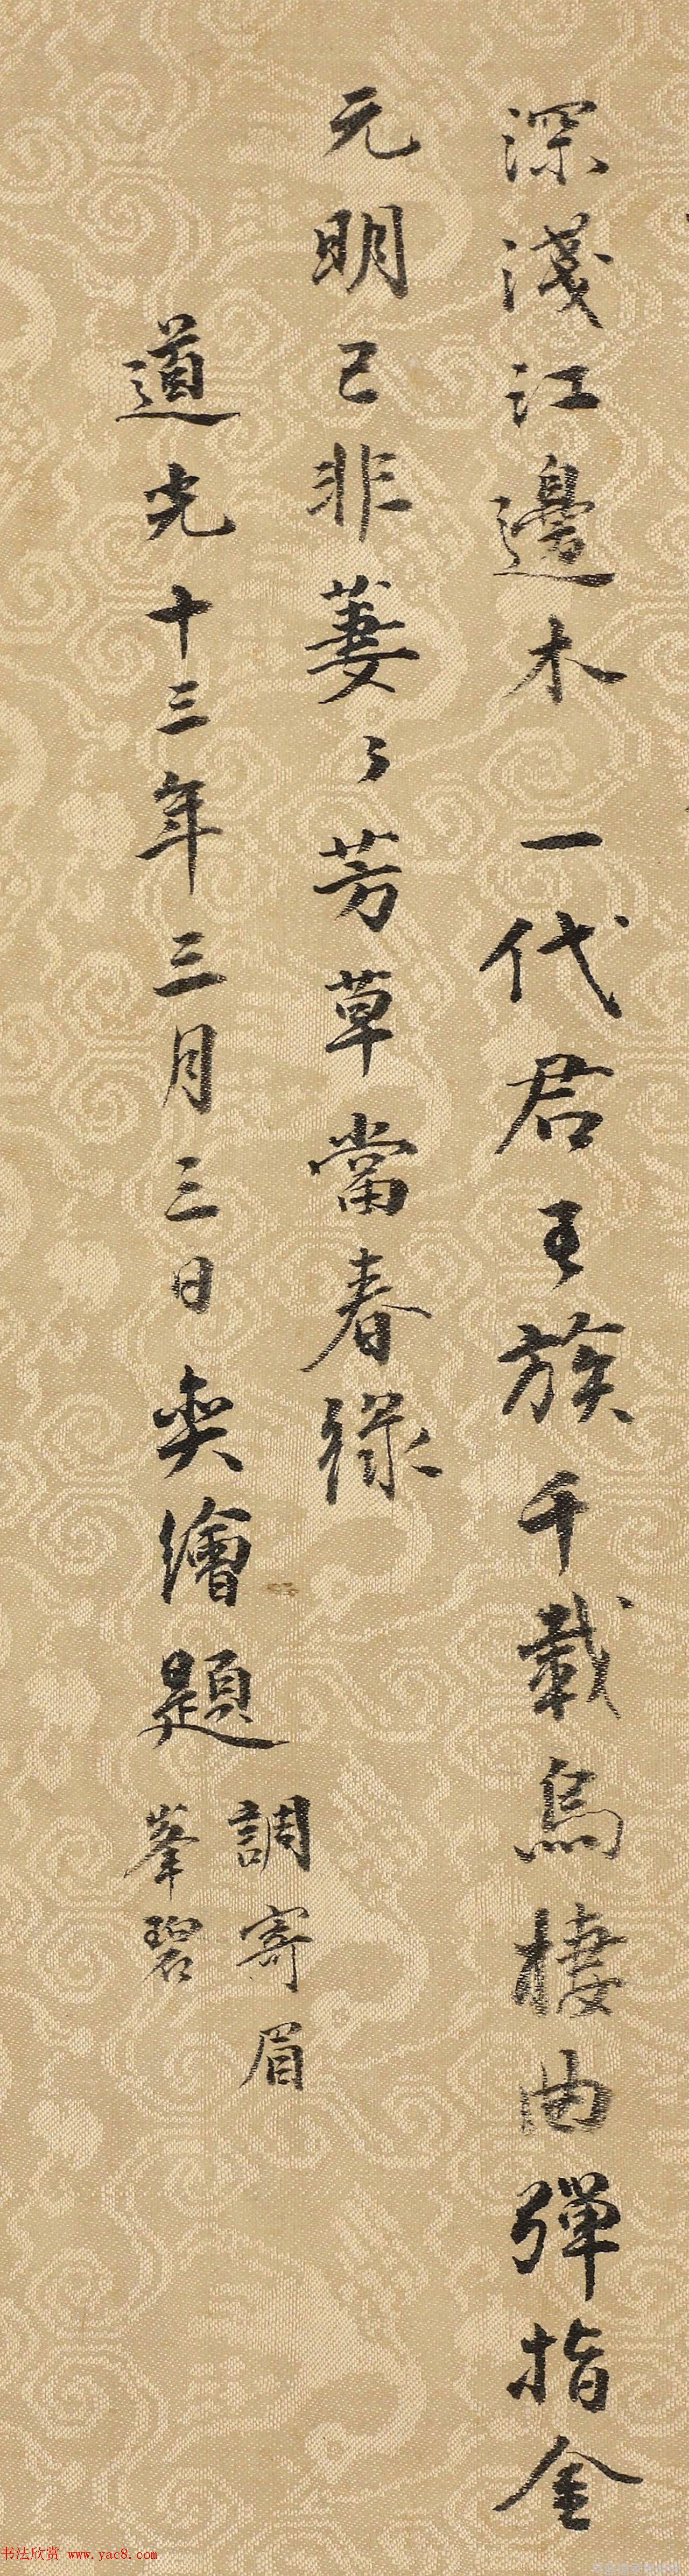 深淺江邊木一代君王族千載烏棲曲彈指金
元明已非萋々芳草當春綠
道光十三年三月三日奕繪題
調寄眉
峯碧
书法欣赏 www.yac8.com